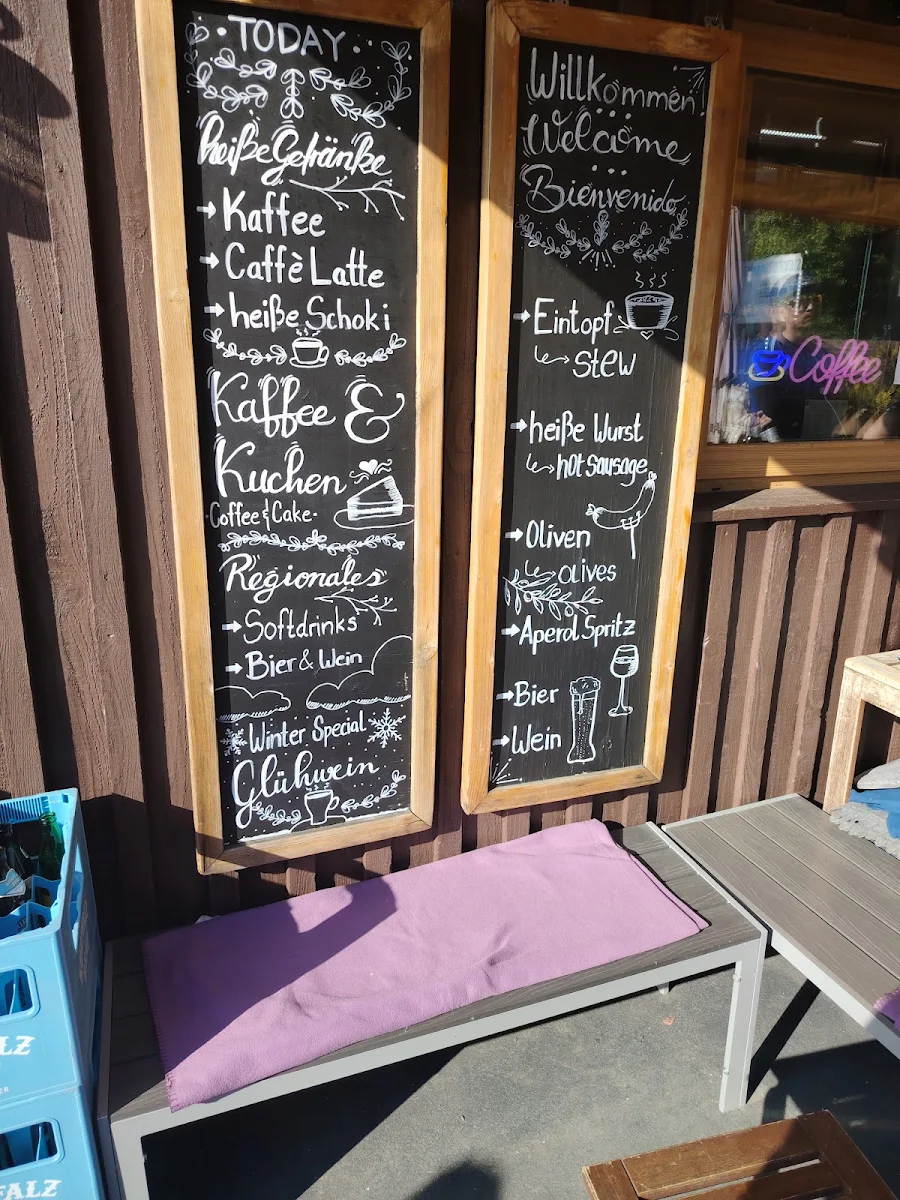 TODAY
heiße Getränke
→ Kaffee
→ Caffè Latte
→ heiße Schoki
Kaffee &
Kuchen
Coffee & Cake
Regionales
→ Softdrinks
→ Bier & Wein
Winter Special
Glühwein
Willkommen!
Welcome
Bienvenido
→ Eintopf
↳ stew
→ heiße Wurst
↳ hot sausage
→ Oliven
↳ olives
→ Aperol Spritz
→ Bier
→ Wein
Coffee